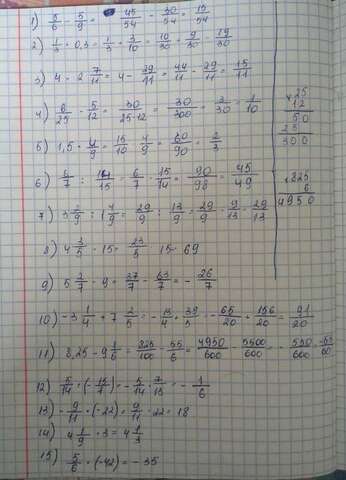 1) 5/6 - 5/9 = 45/54 - 30/54 = 15/54
2) 1/3 + 0,3 = 1/3 + 3/10 = 10/30 + 9/30 = 19/30
3) 4 - 2 7/11 = 4 - 29/11 = 44/11 - 29/11 = 15/11
4) 6/25 · 5/12 = 30/25·12 = 30/300 = 3/30 = 1/10
5) 1,5 · 4/9 = 15/10 · 4/9 = 60/90 = 2/3
6) 6/7 : 14/15 = 6/7 · 15/14 = 90/98 = 45/49
7) 3 2/9 : 1 4/9 = 29/9 : 13/9 = 29/9 · 9/13 = 29/13
8) 4 3/5 · 15 = 23/5 · 15 = 69
9) 5 2/7 - 9 = 37/7 - 63/7 = - 26/7
10) -3 1/4 + 7 2/5 = - 13/4 + 39/5 = - 65/20 + 156/20 = 91/20
11) 8,25 - 9 1/6 = 825/100 - 55/6 = 4950/600 - 5500/600 = - 550/600 = -55/60
12) 5/14 : (- 15/7) = - 5/14 · 7/15 = - 1/6
13) - 9/11 · (-22) = 9/11 · 22 = 18
14) 4 1/9 · 3 = 4 1/3
15) 5/6 · (-42) = - 35
×25
12
50
25
300
×825
6
4950